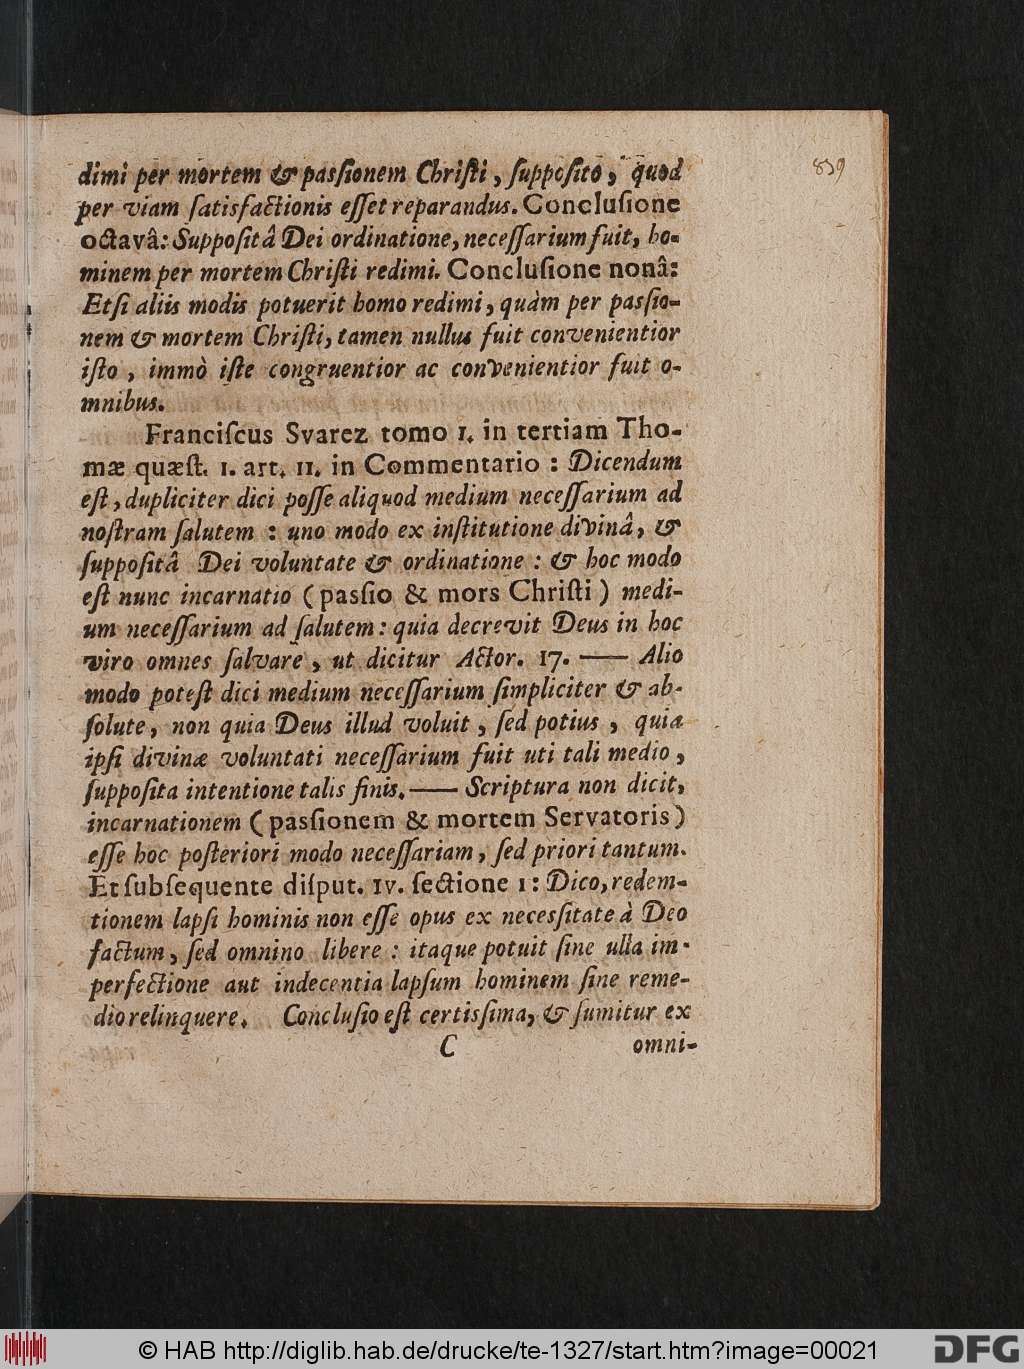 839
dimi per mortem & pasſionem Chriſti, ſuppoſito, quod
per viam ſatisfactionis eſſet reparandus. Concluſione
octavâ: Suppoſitâ Dei ordinatione, neceſſarium fuit, ho-
minem per mortem Chriſti redimi. Concluſione nonâ:
Etſi aliis modis potuerit homo redimi, quàm per pasſio-
nem & mortem Chriſti, tamen nullus fuit convenientior
iſto, immò iſte congruentior ac convenientior fuit o-
mnibus.
Franciſcus Svarez tomo 1. in tertiam Tho-
mæ quæſt. 1. art. 11. in Commentario: Dicendum
eſt, dupliciter dici poſſe aliquod medium neceſſarium ad
noſtram ſalutem: uno modo ex inſtitutione divinâ, &
ſuppoſitâ Dei voluntate & ordinatione: & hoc modo
eſt nunc incarnatio (pasſio & mors Chriſti) medi-
um neceſſarium ad ſalutem: quia decrevit Deus in hoc
viro omnes ſalvare, ut dicitur Actor. 17. —— Alio
modo poteſt dici medium neceſſarium ſimpliciter & ab-
ſolute, non quia Deus illud voluit, ſed potius, quia
ipſi divinæ voluntati neceſſarium fuit uti tali medio,
ſuppoſita intentione talis finis. —— Scriptura non dicit,
incarnationem (pasſionem & mortem Servatoris)
eſſe hoc poſteriori modo neceſſariam, ſed priori tantum.
Et ſubſequente diſput. IV. ſectione 1: Dico, redem-
tionem lapſi hominis non eſſe opus ex necesſitate à Deo
factum, ſed omnino libere: itaque potuit ſine ulla im-
perfectione aut indecentia lapſum hominem ſine reme-
dio relinquere. Concluſio eſt certisſima, & ſumitur ex
C omni-
© HAB http://diglib.hab.de/drucke/te-1327/start.htm?image=00021
DFG